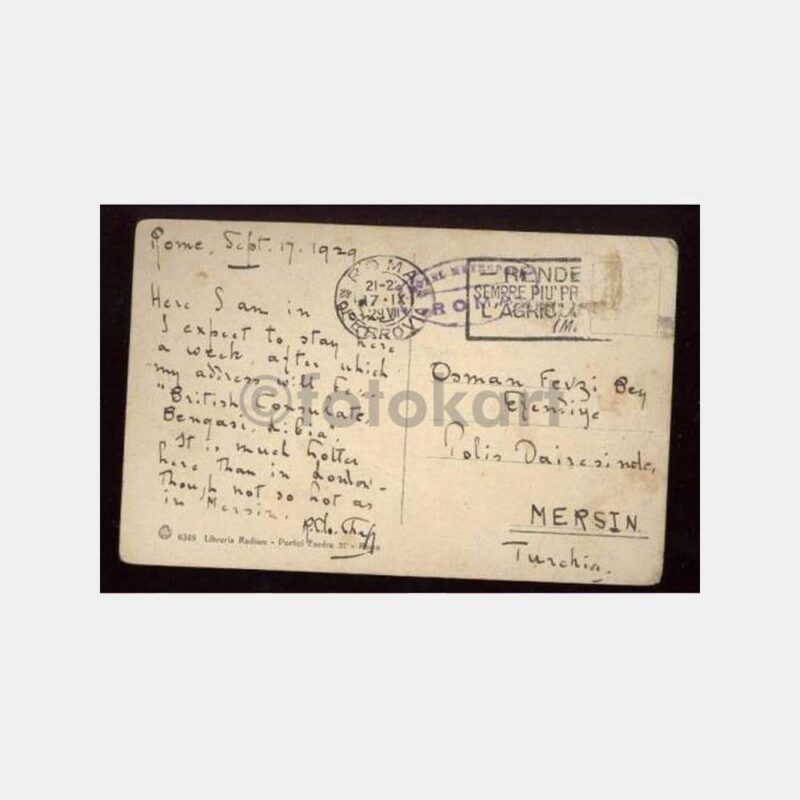 Rome, Sept. 17, 1929
Here I am in
I expect to stay here
a week, after which
my address will be:-
"British Consulate,
Bengasi, Libia."
It is much hotter
here than in London -
though not so hot as
in Mersin.
6349 Libreria Radium - Portici Esedra
ROMA
21-2
17 · IX
FERROVIA
ROMA
- RENDE
SEMPRE PIU' PR
L'AGRIC
Osman Fevzi Bey
Efendiye
Polis Dairesinde,
MERSIN
Turchia.
©fotokart